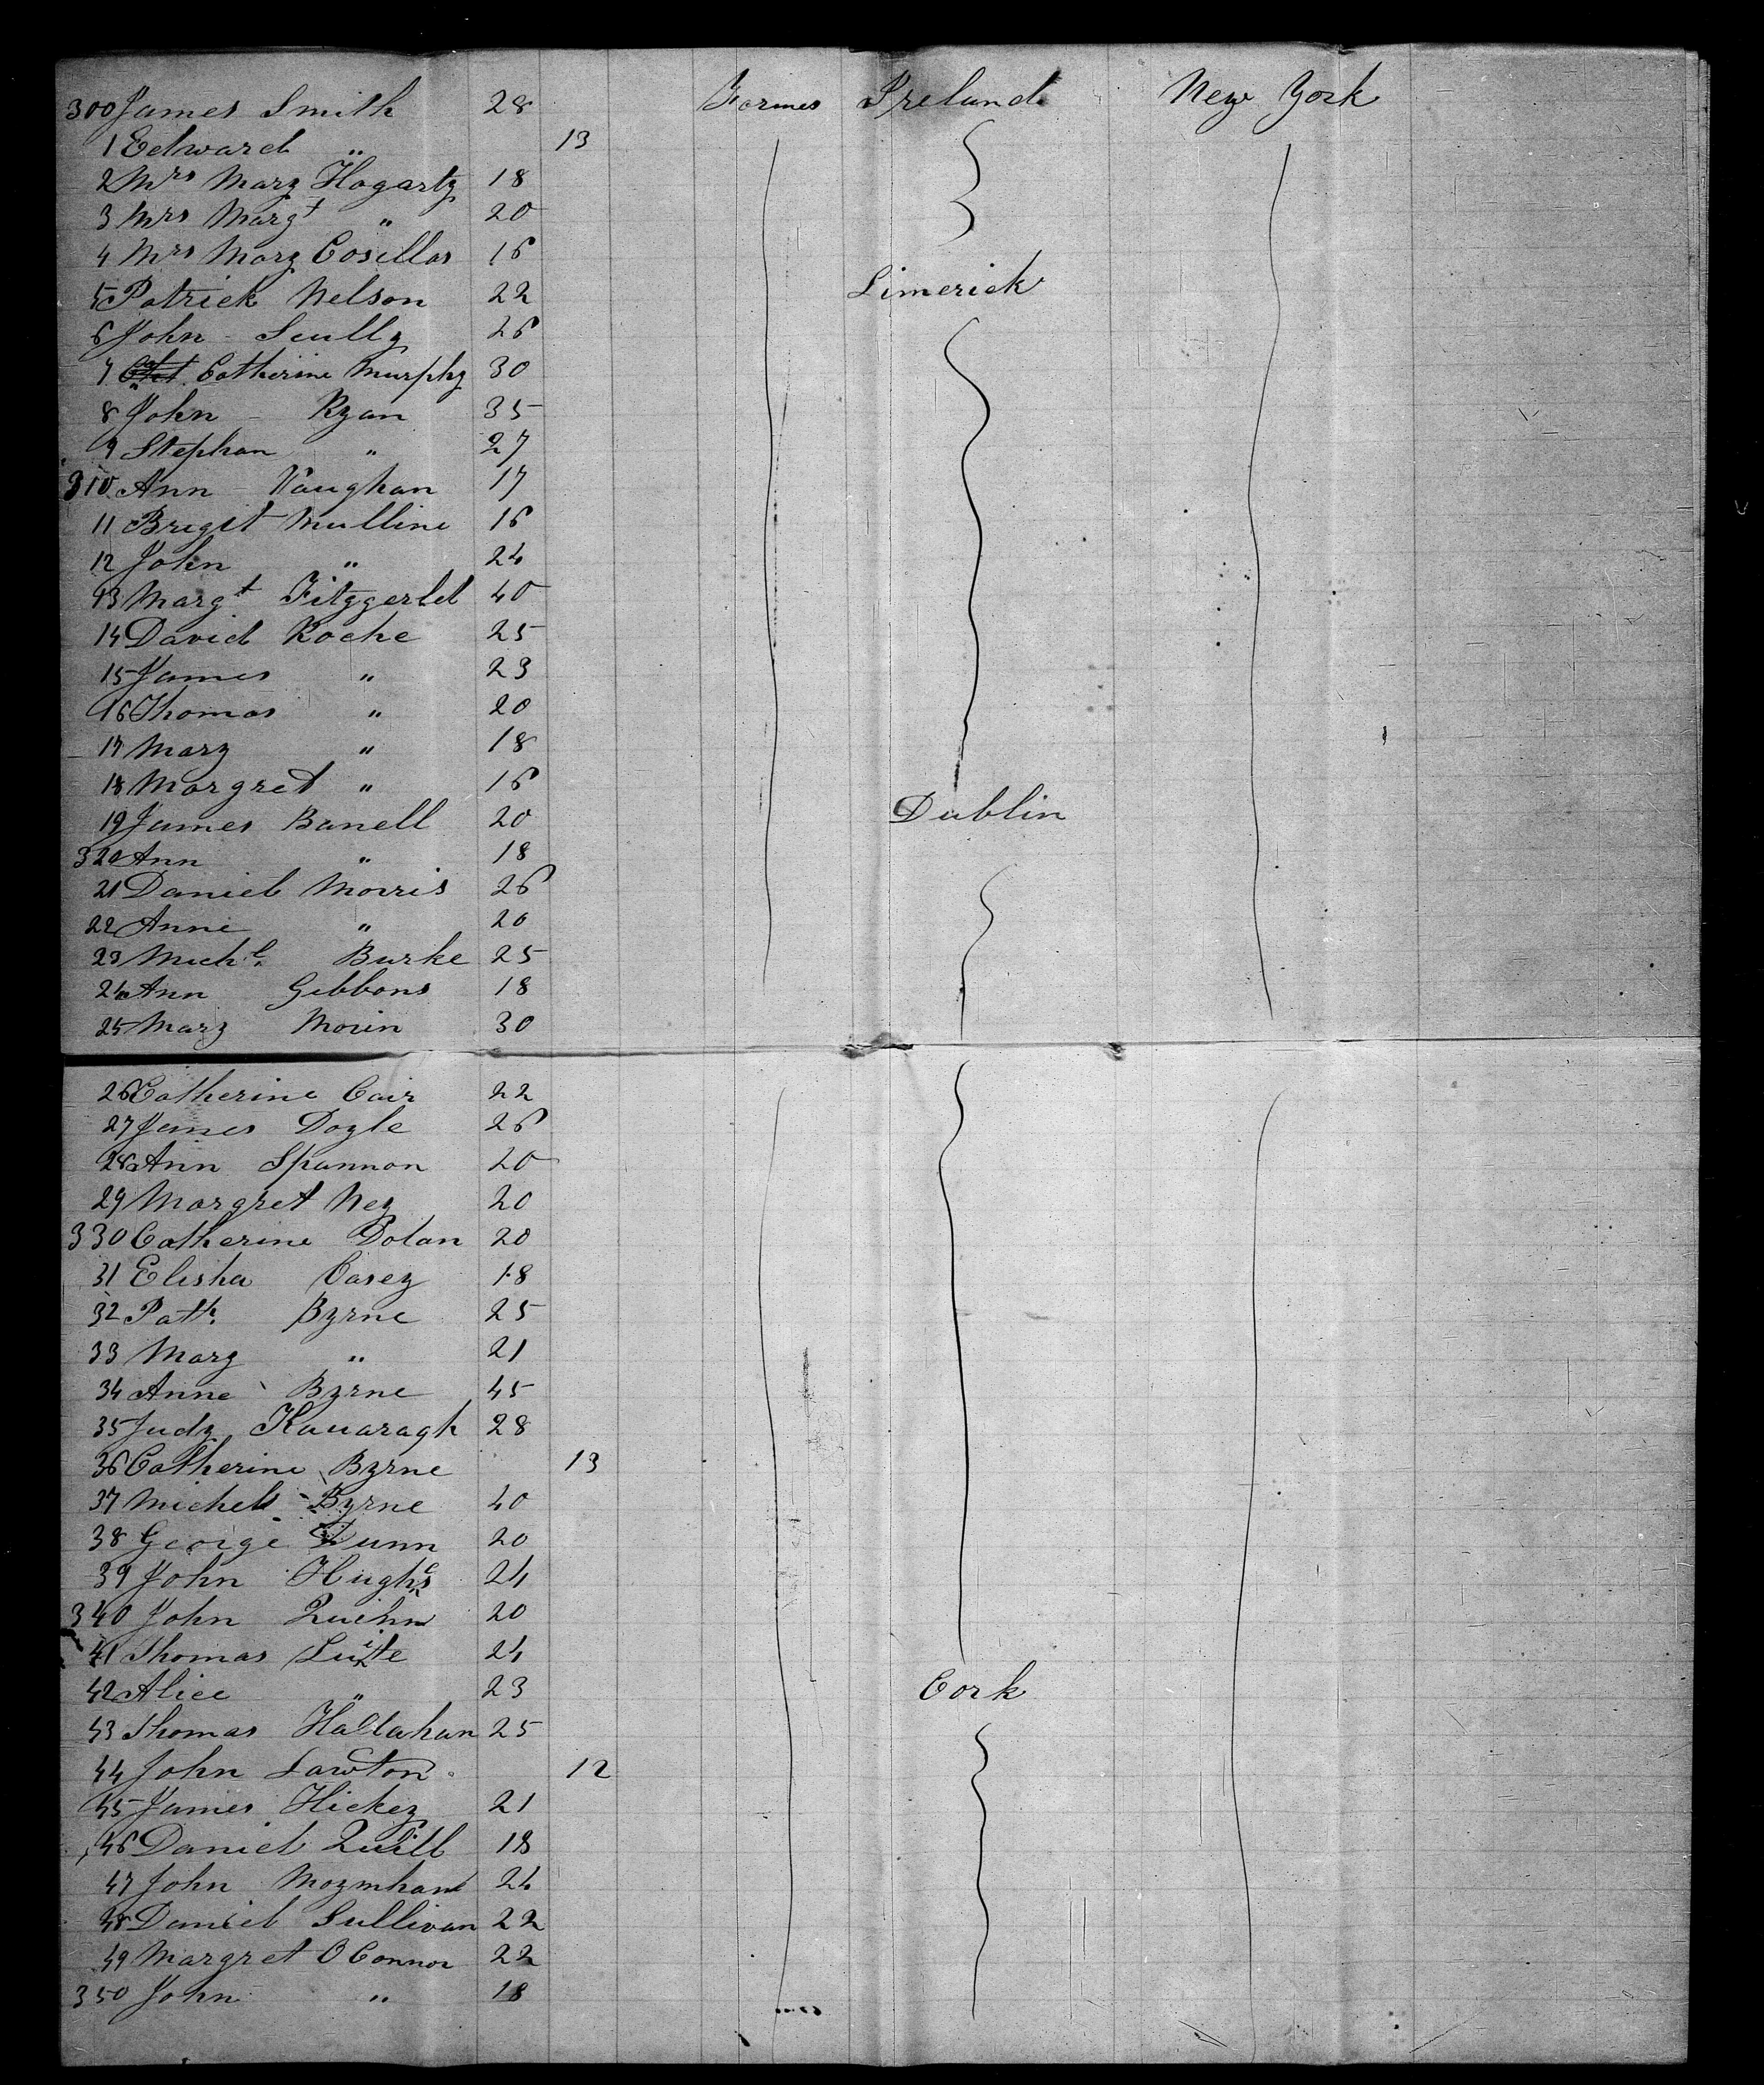 300 James Smith 28 Farmer Ireland New York
1 Edward " 13
2 Mrs Mary Hogarty 18
3 Mrs Margt " 20
4 Mrs Mary Cosillas 16
5 Patrick Nelson 22 Limerick
6 John - Scully 26
7 Catherine Murphy 30
8 John - Ryan 35
9 Stephan " 27
310 Ann - Vaughan 17
11 Bregit Mulline 16
12 John " 24
13 Margt Fitggerld 40
14 David Roche 25
15 James " 23
16 Thomas " 20
17 Mary " 18
18 Margret " 16
19 James Banell 20 Dublin
320 Ann " 18
21 Daniel Morris 26
22 Anne " 20
23 Michl. Burke 25
24 Ann Gibbons 18
25 Mary Morin 30
26 Catherine Cair 22
27 James Doyle 26
28 Ann Spannon 20
29 Margret Ney 20
330 Catherine Dolan 20
31 Elisha Casey 18
32 Patk. Byrne 25
33 Mary " 21
34 Anne Byrne 45
35 Judy Kauaragh 28
36 Catherine Byrne 13
37 Michel Byrne 40
38 George Dunn 20
39 John Hughes 24
340 John Quehn 20
41 Thomas 24
42 Alice " 23 Cork
43 Thomas Hallahan 25
44 John Lawton 12
45 James Hickey 21
46 Daniel Quill 18
47 John Moymhand 24
48 Daniel Sullivan 22
49 Margret O Connor 22
350 John " 18